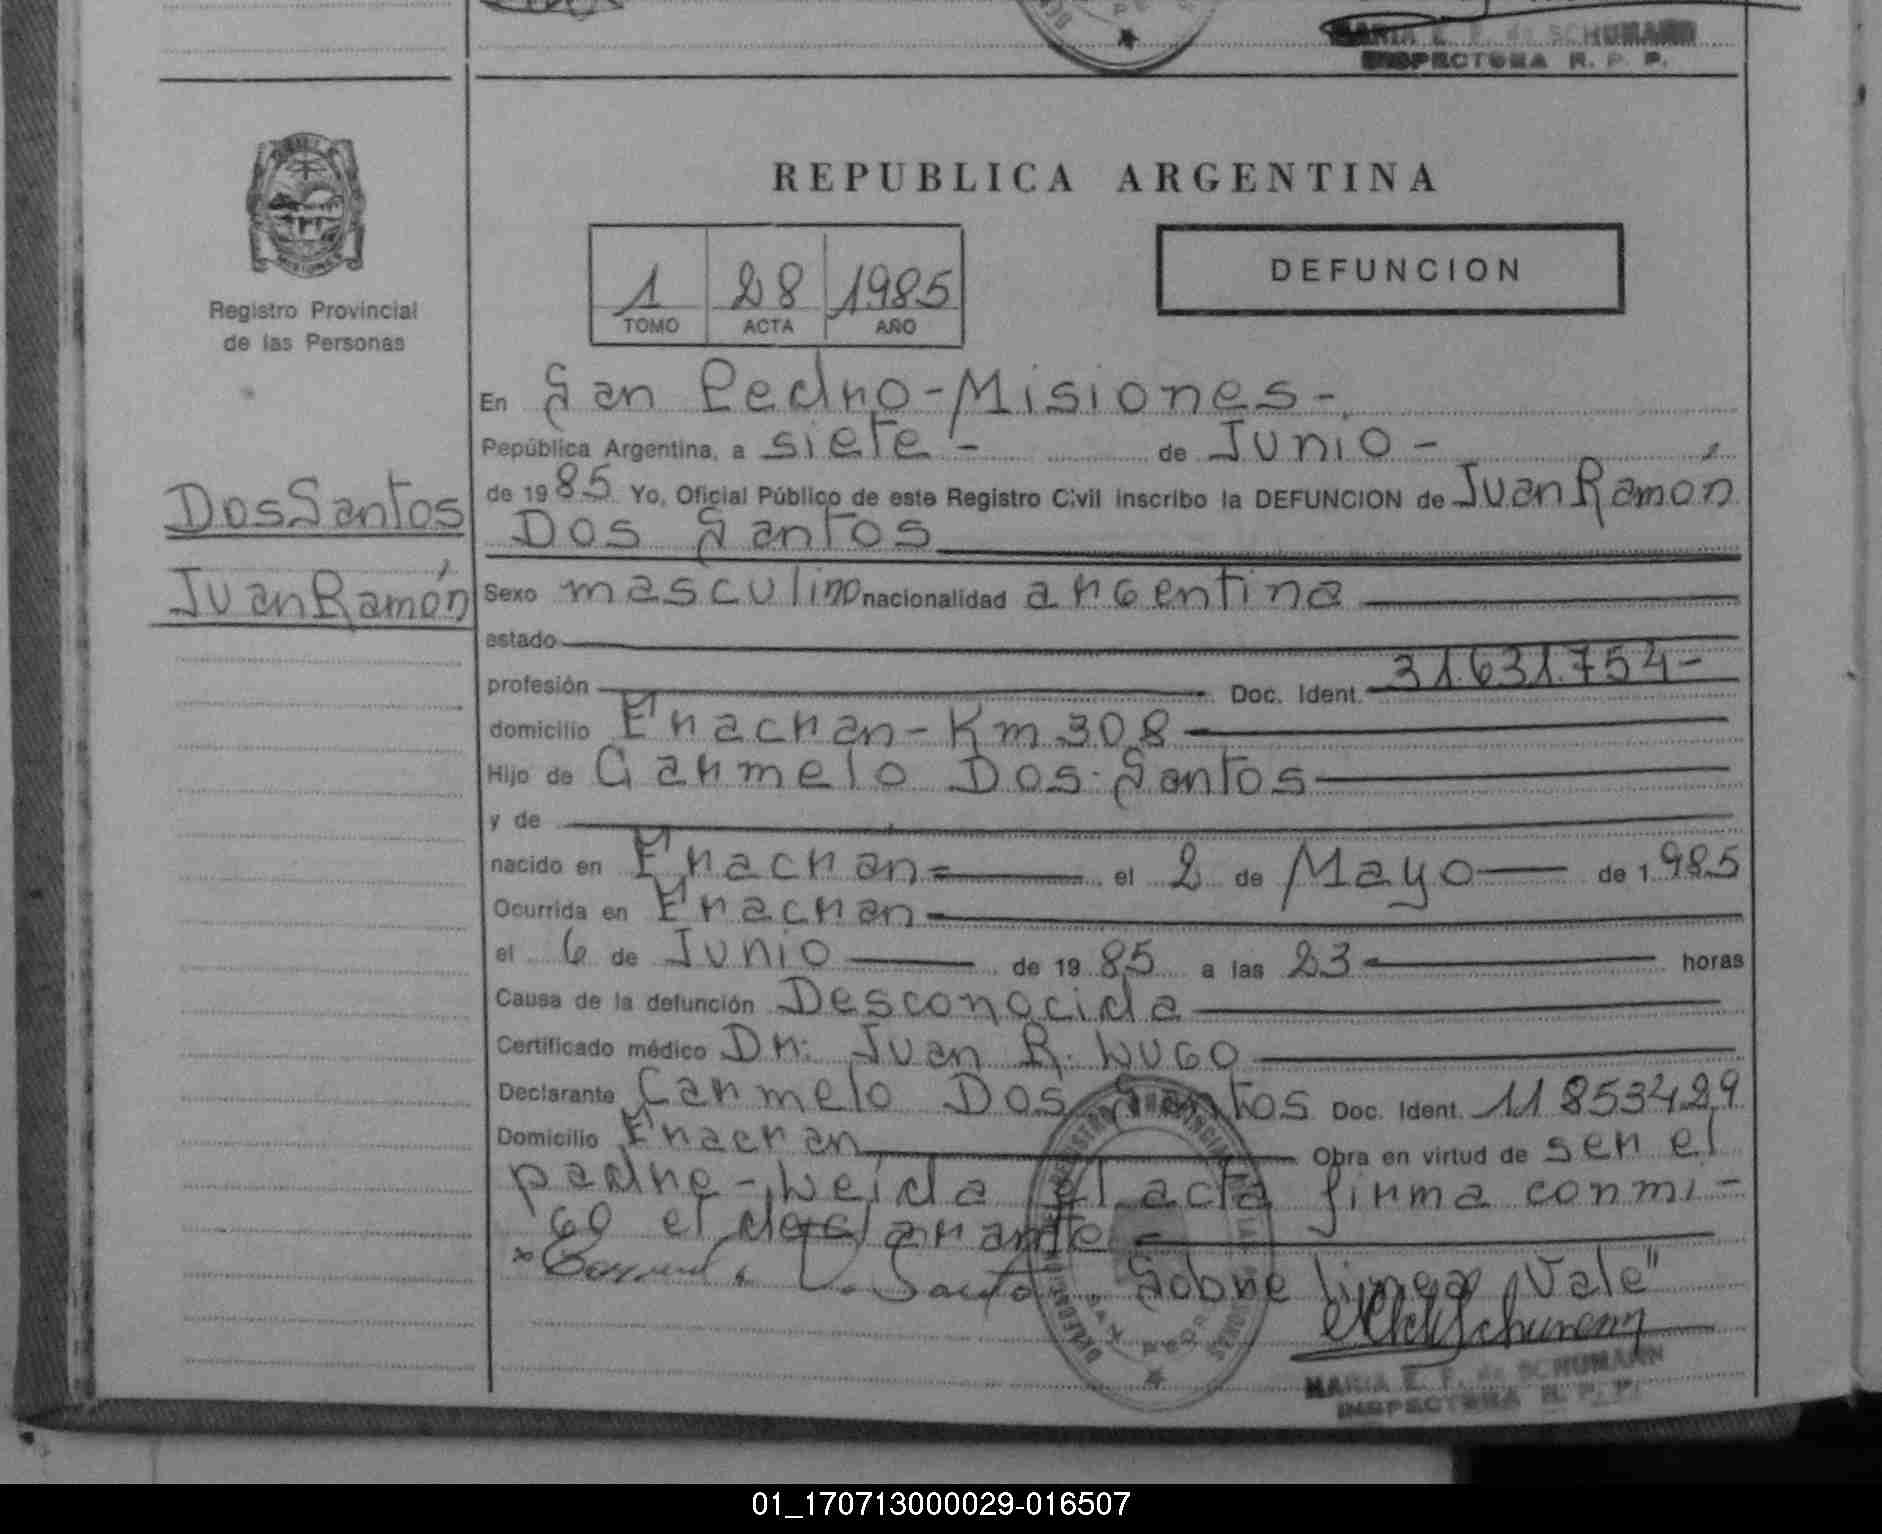 MARIA E. F. de SCHUMANN
INSPECTORA R. P. P.
REPUBLICA ARGENTINA
1 28 1985
TOMO ACTA AÑO
DEFUNCION
Registro Provincial
de las Personas
DosSantos
JuanRamón
En San Pedro-Misiones-
República Argentina, a siete - de Junio -
de 1985 Yo, Oficial Público de este Registro Civil inscribo la DEFUNCION de Juan Ramón
Dos Santos
Sexo masculino nacionalidad argentina
estado
profesión Doc. Ident. 31.631.754-
domicilio Fracran-Km 308
Hijo de Carmelo Dos Santos
y de
nacido en Fracran= el 2 de Mayo de 1.985
Ocurrida en Fracran
el 6 de Junio de 1985 a las 23 horas
Causa de la defunción Desconocida
Certificado médico Dr: Juan R. Lugo
Declarante Carmelo Dos Santos Doc. Ident. 11853429
Domicilio Fracran Obra en virtud de ser el
padre-Leída el acta firma conmi-
go el declarante -
Sobre linea "Vale"
MARIA E. F. de SCHUMANN
INSPECTORA R. P. P.
01_170713000029-016507